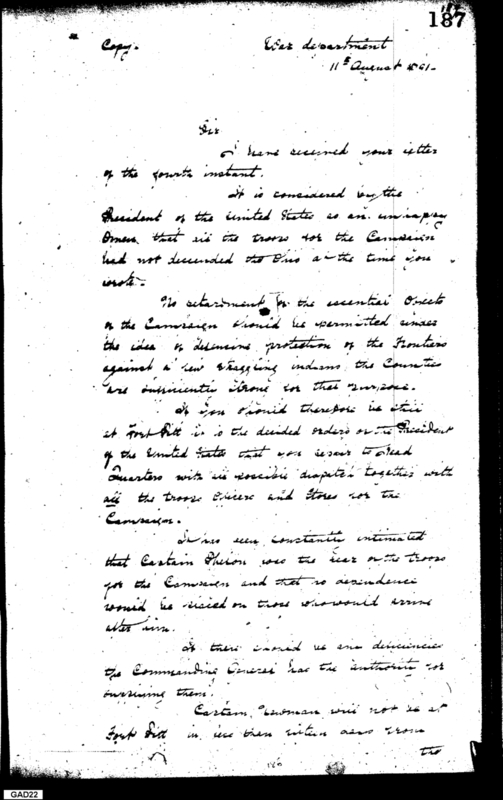 187
Copy.
War department
11th August 1791.
Sir
I have received your letter
of the fourth instant.
It is considered by the
President of the United States as an unhappy
Omen that all the troops for the Campaign
had not descended the Ohio at the time you
wrote.
No retardment of the essential Objects
of the Campaign should be permitted under
the idea of defensive protection of the Frontiers
against a few straggling indians, the Counties
are sufficiently strong for that purpose.
If you should therefore be still
at Fort Pitt it is the decided orders of the President
of the United States that you repair to Head
Quarters with all possible dispatch together with
all the troops Officers and Stores for the
Campaign.
It has been constantly intimated
that Captain Phelon was the rear of the troops
for the Campaign and that no dependence
would be placed on those who would arrive
after him.
If there should be any deficiencies
the Commanding General has the authority for
supplying them.
Captain Newman will not be at
Fort Pitt in less than fifteen days from
the
GAD22